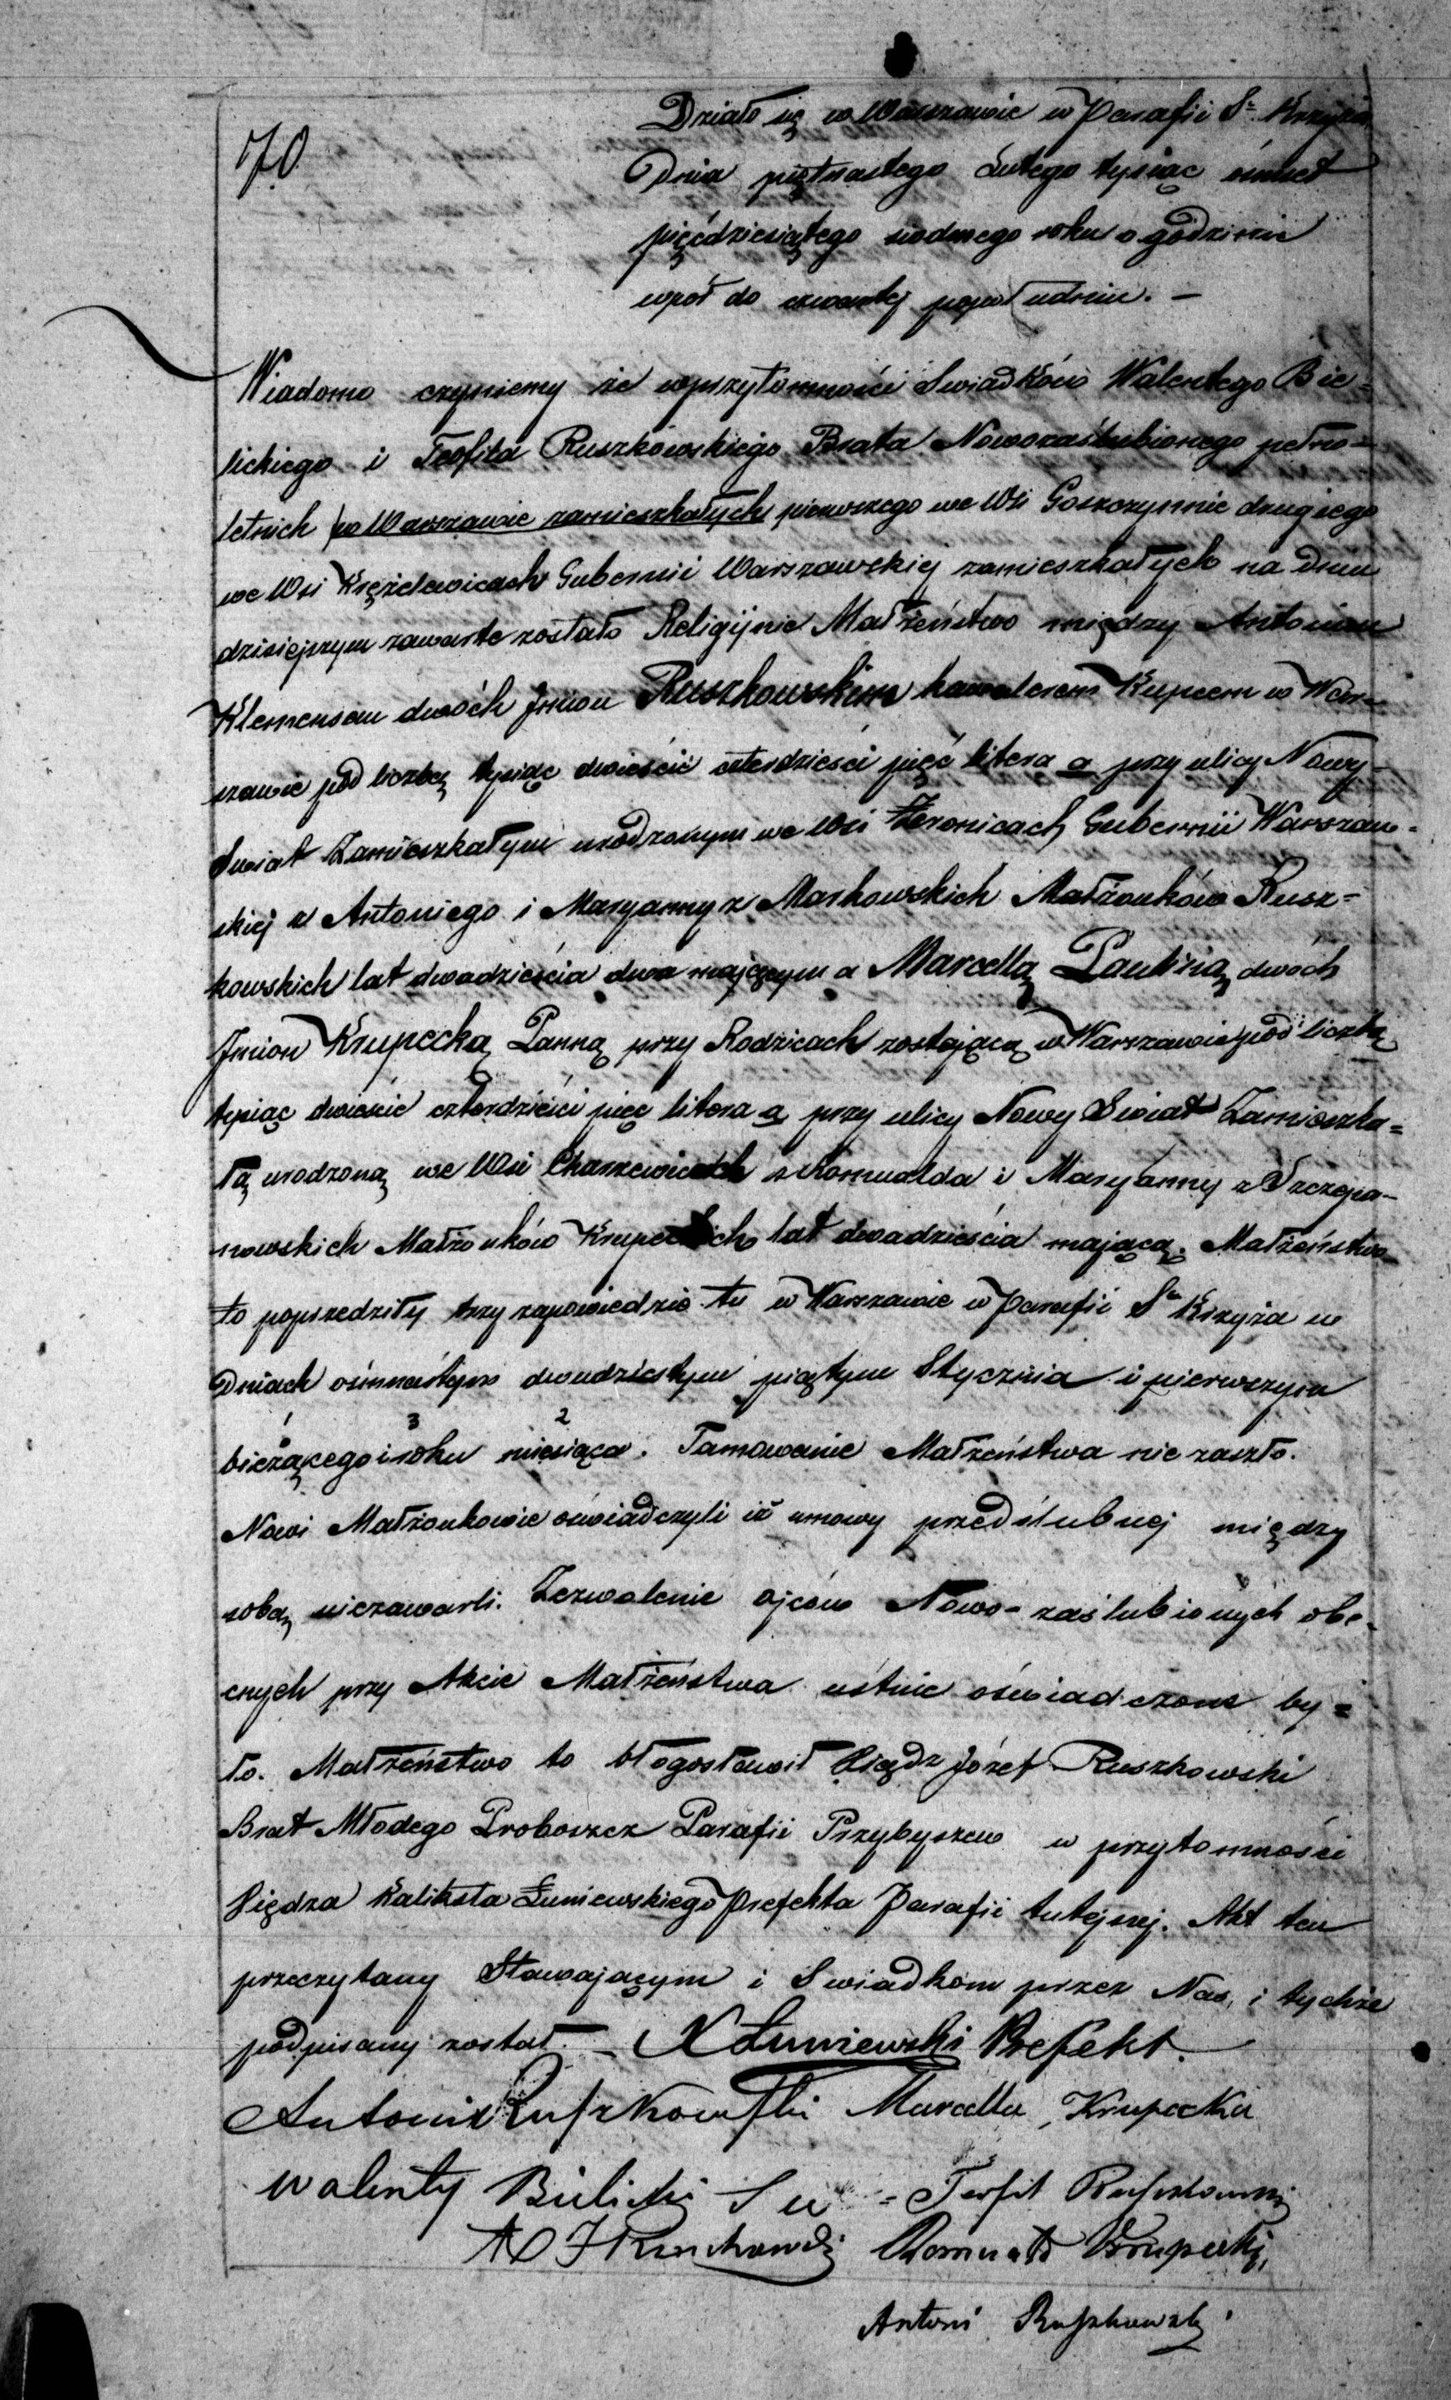 70
Działo się w Warszawie w Parafii Sº Krzyża
Dnia piętnastego Lutego tysiąc ośmset
pięćdziesiątego siódmego roku o godzinie
wpół do czwartej popołudniu. –
Wiadomo czyniemy że wprzytomności Swiadków Walentego Bie=
lickiego i Teofila Ruszkowskiego Brata Nowozaślubionego pełno=
letnich w Warszawie zamieszkałych pierwszego we Wsi Goszczynnie drugiego
we Wsi Krężelewicach Gubernii Warszawskiej zamieszkałych na Dniu
dzisiejszym zawarte zostało Religijnie Małżeństwo między Antonim
Klemensem dwóch Jmion Ruszkowskim kawalerem Kupcem w War=
szawie pod liczbą tysiąc dwieście czterdzieści pięć litera a przy ulicy Nowy
Swiat Zamieszkałym urodzonym we Wsi Żeronicach Gubernii Warszaw=
skiej z Antoniego i Maryanny z Markowskich Małżonków Rusz=
kowskich lat dwadzieścia dwa mającym a Marcellą Pauliną dwóch
Jmion Krupecką Panną przy Rodzicach zostającą w Warszawie pod liczbą
tysiąc dwieście czterdzieści pięć litera a przy ulicy Nowy Swiat Zamieszka=
łą urodzoną we Wsi Charzewicach z Romualda i Maryanny z Szczepa=
nowskich Małżonków Krupeckich lat dwadzieścia mającą. Małżeństwo
to poprzedziły trzy zapowiedzie tu w Warszawie w Parafii Sº Krzyża w
Dniach ośmnastym dwudziestym piątym Stycznia i pierwszym
1 3 2
bieżącego i roku miesiąca. Tamowanie Małżeństwa nie zaszło.
Nowi Małżonkowie oświadczyli iż umowy przedślubnej między
sobą niezawarli. Zezwolenie ojców Nowo=zaślubionych obe=
cnych przy Akcie Małżeństwa ustnie oświadczone by=
ło. Małżeństwo to błogosławił Xiądz Józef Ruszkowski
Brat Młodego Proboszcz Parafii Przybyszew w przytomności
Xiędza Kaliksta Łuniewskiego Prefekta Parafii tutejszej. Akt ten
przeczytany Stawającym i Swiadkom przez Nas, i tychże
podpisany został. – X Łuniewski Prefekt.
Antoni Ruszkowski Marcella Krupecka
Walenty Bielicki Teofil Ruszkowski
X J Ruszkowski Romuald Krupecki,
Antoni Ruszkowski